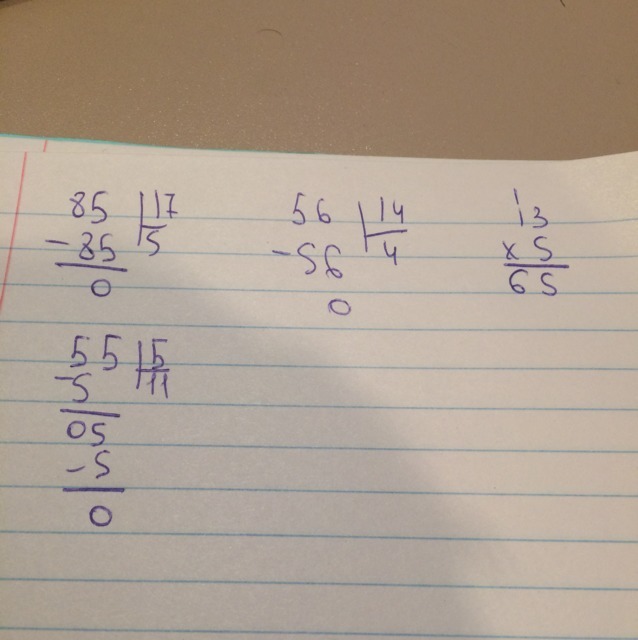 85 17
-85 5
0
56 14
-56 4
0
1
13
x 5
65
55 5
-5 11
05
-5
0